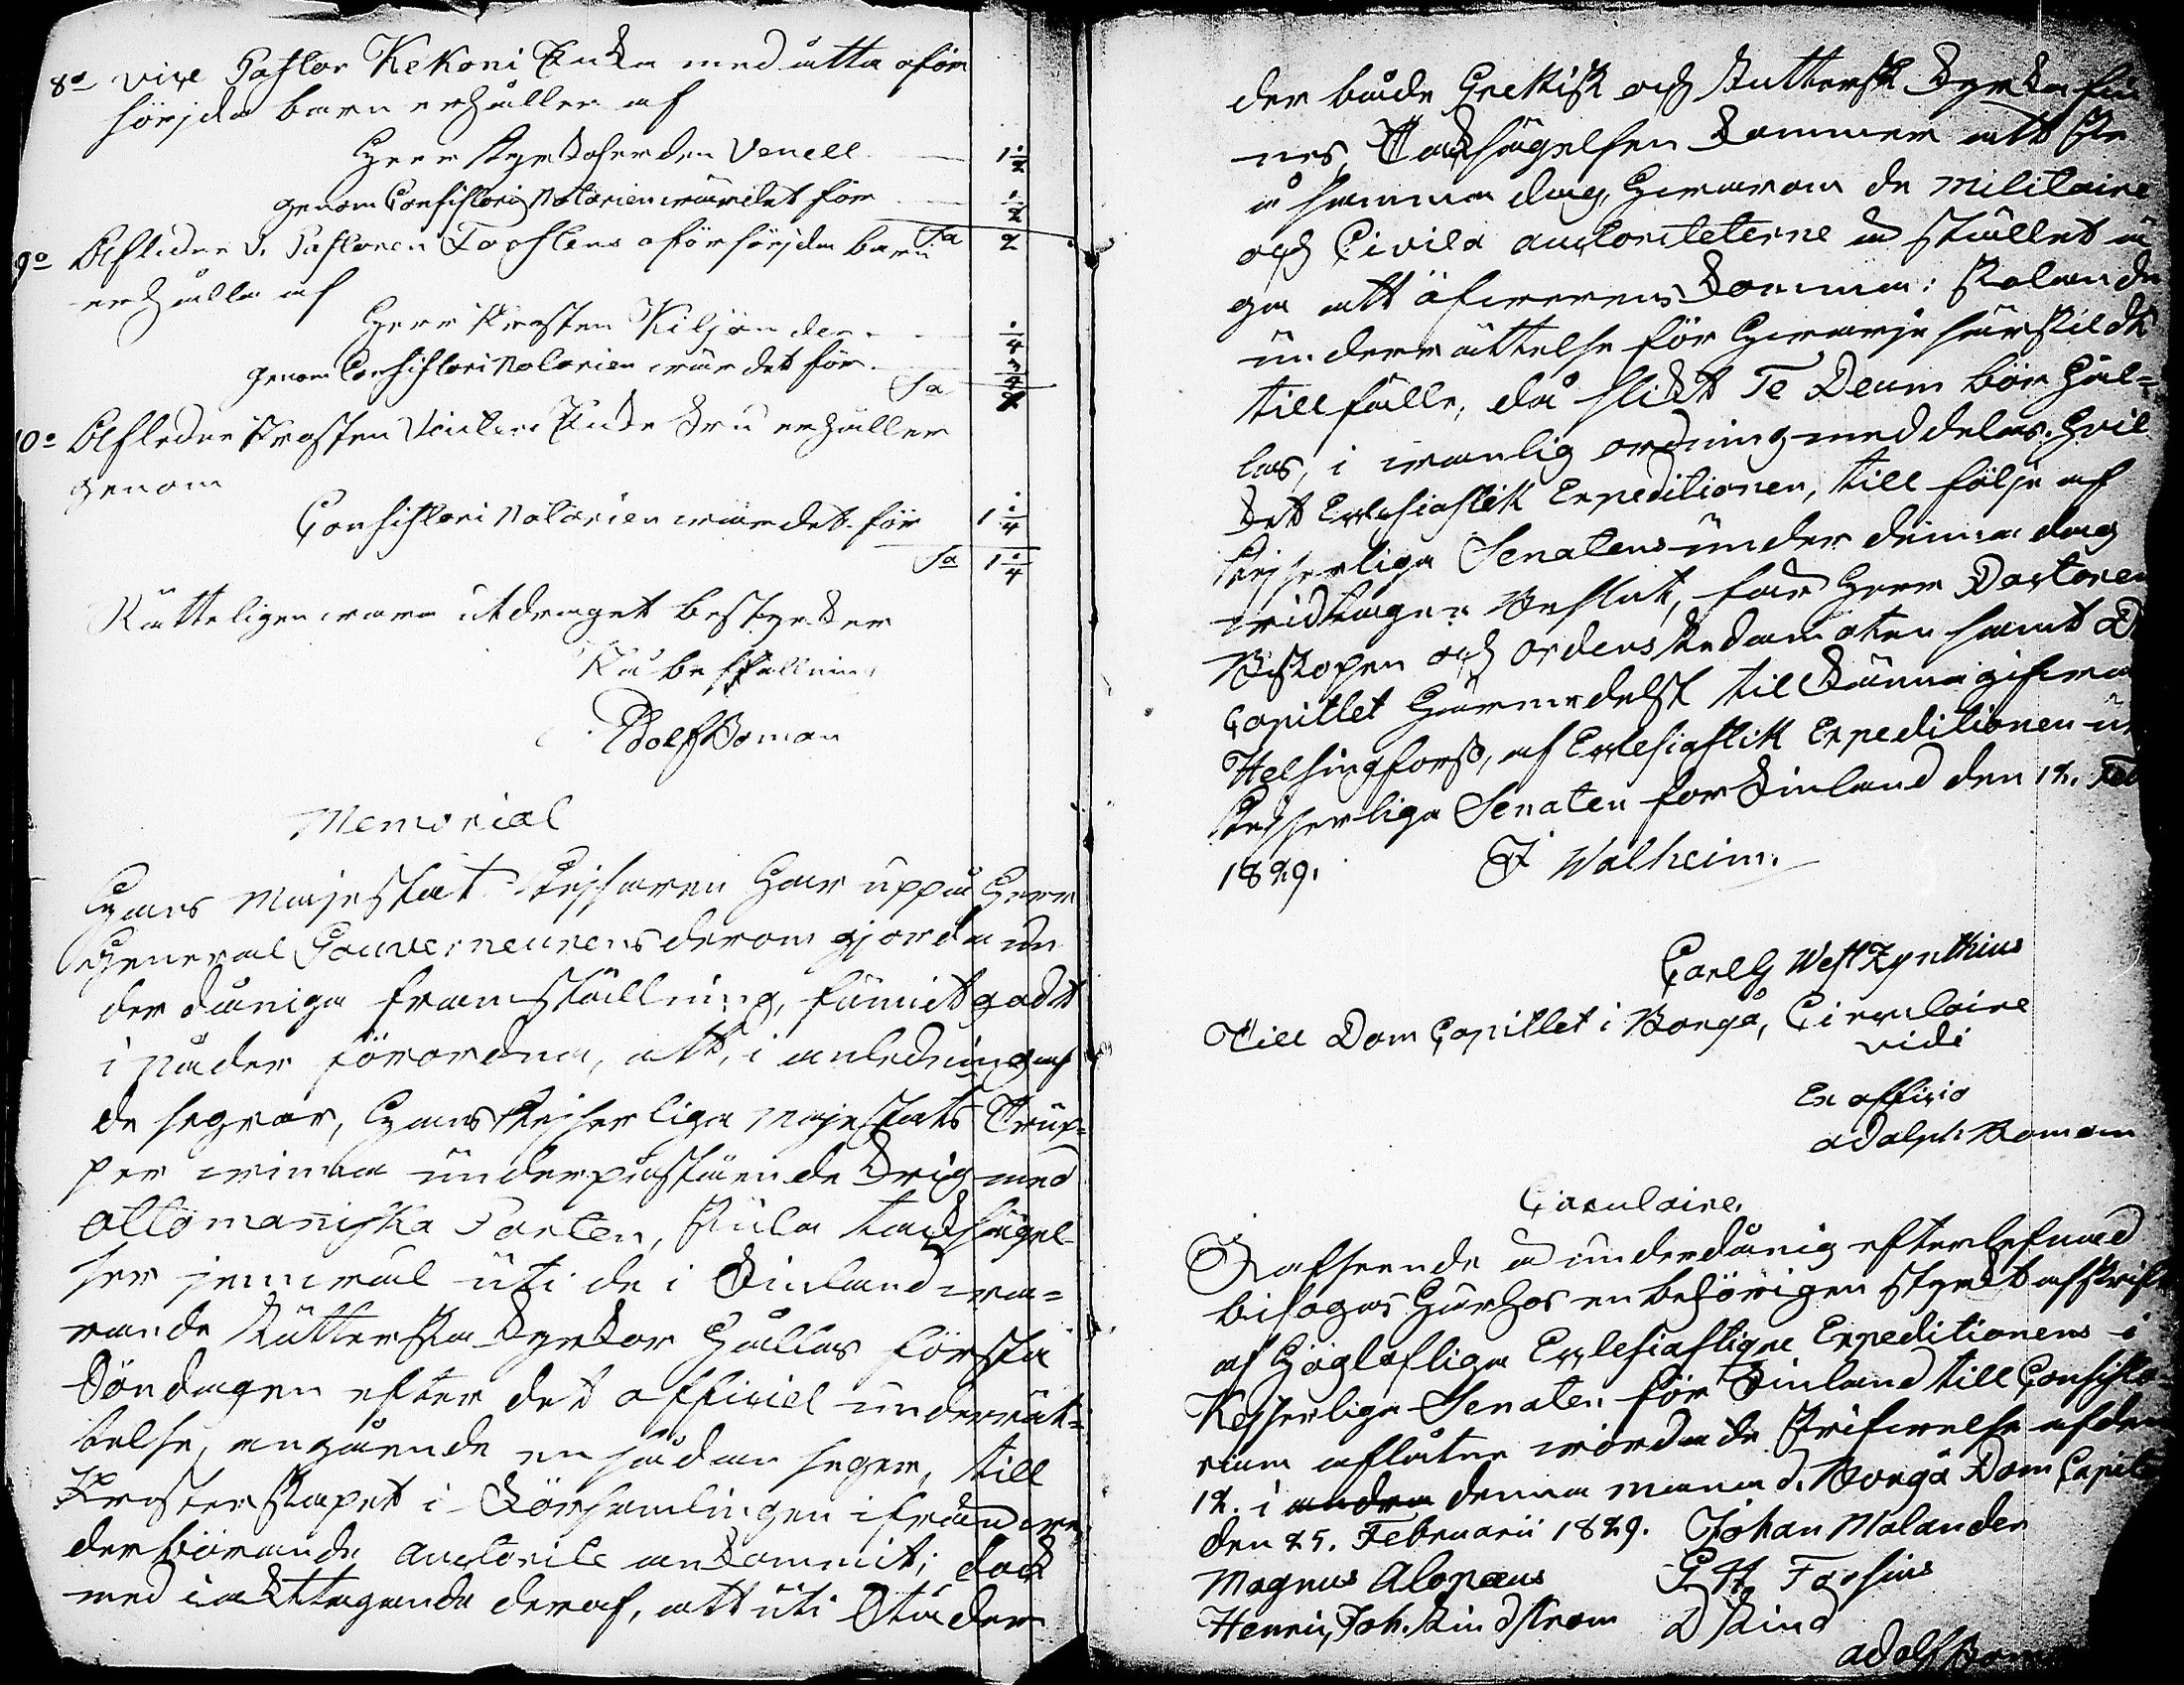 8o Vice Pastor Kekoni Enka med åtta oför
sörjda barn erhåller af
Herr Kyrkoherden Venell 1½
genom Consistorii Notarien wärdet för ½
Sa 2
9o Afledne V. Pastoren Forstens oförsörjda barn
erhålla af
Herr Prosten Kiljander ¼
genom Consistori Notarien wärdet för
Sa
10o Afledne Prosten Enke Fru erhåller
genom
Consistori Notarien wärdet för 1¼
Sa 1¼
Rätteligen wara utdraget bestyrker
På befallning
Adolf Boman
Memorial
Hans Majestät Kejsaren har uppå Herr
General Gouverneurens derom gjorda un
der dåniga framställning, funnit godt
i Nåder förordna, att, i anledning af
de segrar, Hans Kejserliga Majestäts Trup=
per winna under påstående Krig med
Ottomaniska Porten, skola tacksägel
ser jemwäl uti de i Finland wa=
rande Lutterska Kyrkor hållas första
Söndagen efter det officiel underrät=
telse, angående en sådan seger, till
Presterskapet i Församlingen ifrån we
derbörande Auctorite ankommit; dock
med iakttagande deraf, att uti Städer
der både Grekisk och Luttersk Kyrka fin
nes, Tacksägelsen kommer att ske
å samma dag, hwarom de Militaire
och Civila auctoriteterne å stället ä
ga att öfwerenskomma: skolande
underrättelse för hwarje särskildt
tillfälle, då slikt Te Deum bör hål=
las, i wanlig ordning meddelas. Hvil
ket Ecclesiastik Expeditionen, till följe af
Kejserliga Senatens under denna dag
widtagne Beslut, får Herr Doctoren
Biskopen och Ordens Ledamoten samt D
Capitlet härmedelst tillkännagifwa
Helsingfors, af Ecclesiastik Expeditionen u
Kejserliga Senaten for Finland den 12. Feb
1829. F Walheim.
Carl G West Zynthius
Till Dom Capitlet i Borgå, Circulaire
vidi
Ex officio
Adolph Boman
Circulaire.
I afseende å underdånig efterlefnad
bifogas härhos en behörigen styrkt afskrift
af Höglofliga Ecclesiastique Expeditionens i
Kejserliga Senaten för Finland till Consisto=
rium aflåtne wordade Skrifwelse af den
12. i andra denna månad. Borgå Dom Capitel
den 25. Februarii 1829. Johan Molander
Magnus Alopæus G H Forsius
Henric, Joh. Lindström D Lind
Adolf Boman